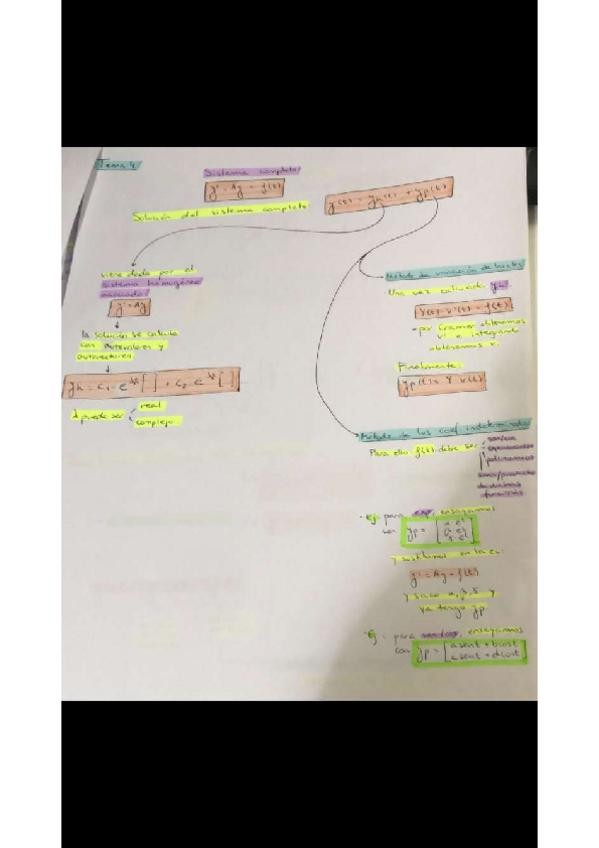 Tema 4
Sistema completo
y' = Ay + f(t)
Solución del sistema completo
y(t) = yh(t) + yp(t)
viene dada por el
sistema homogéneo
asociado
y' = Ay
la solución se calcula
con autovalores y
autovectores
yh = c₁ · e [ ] + c₂ · e [ ]
λ puede ser
real
complejo
Método de variación de
Una vez calculado yh
Y(t) · v'(t) = f(t)
- por Cramer obtenemos
v' e integrando
obtenemos v.
Finalmente:
yp(t) = Y · v(t)
Método de los coef indeterminados
Para ello f(t) debe ser
sen/cos
exponenciales
polinómicos
suma/producto
de
funciones
- ej: para exp, ensayamos
con yp =
y sustituimos en la ec:
y' = Ay + f(t)
y saco α, β, δ y
ya tengo yp
- Ej: para sen/cos, ensayamos
con yp = [ a sent + b cost
c sent + d cost